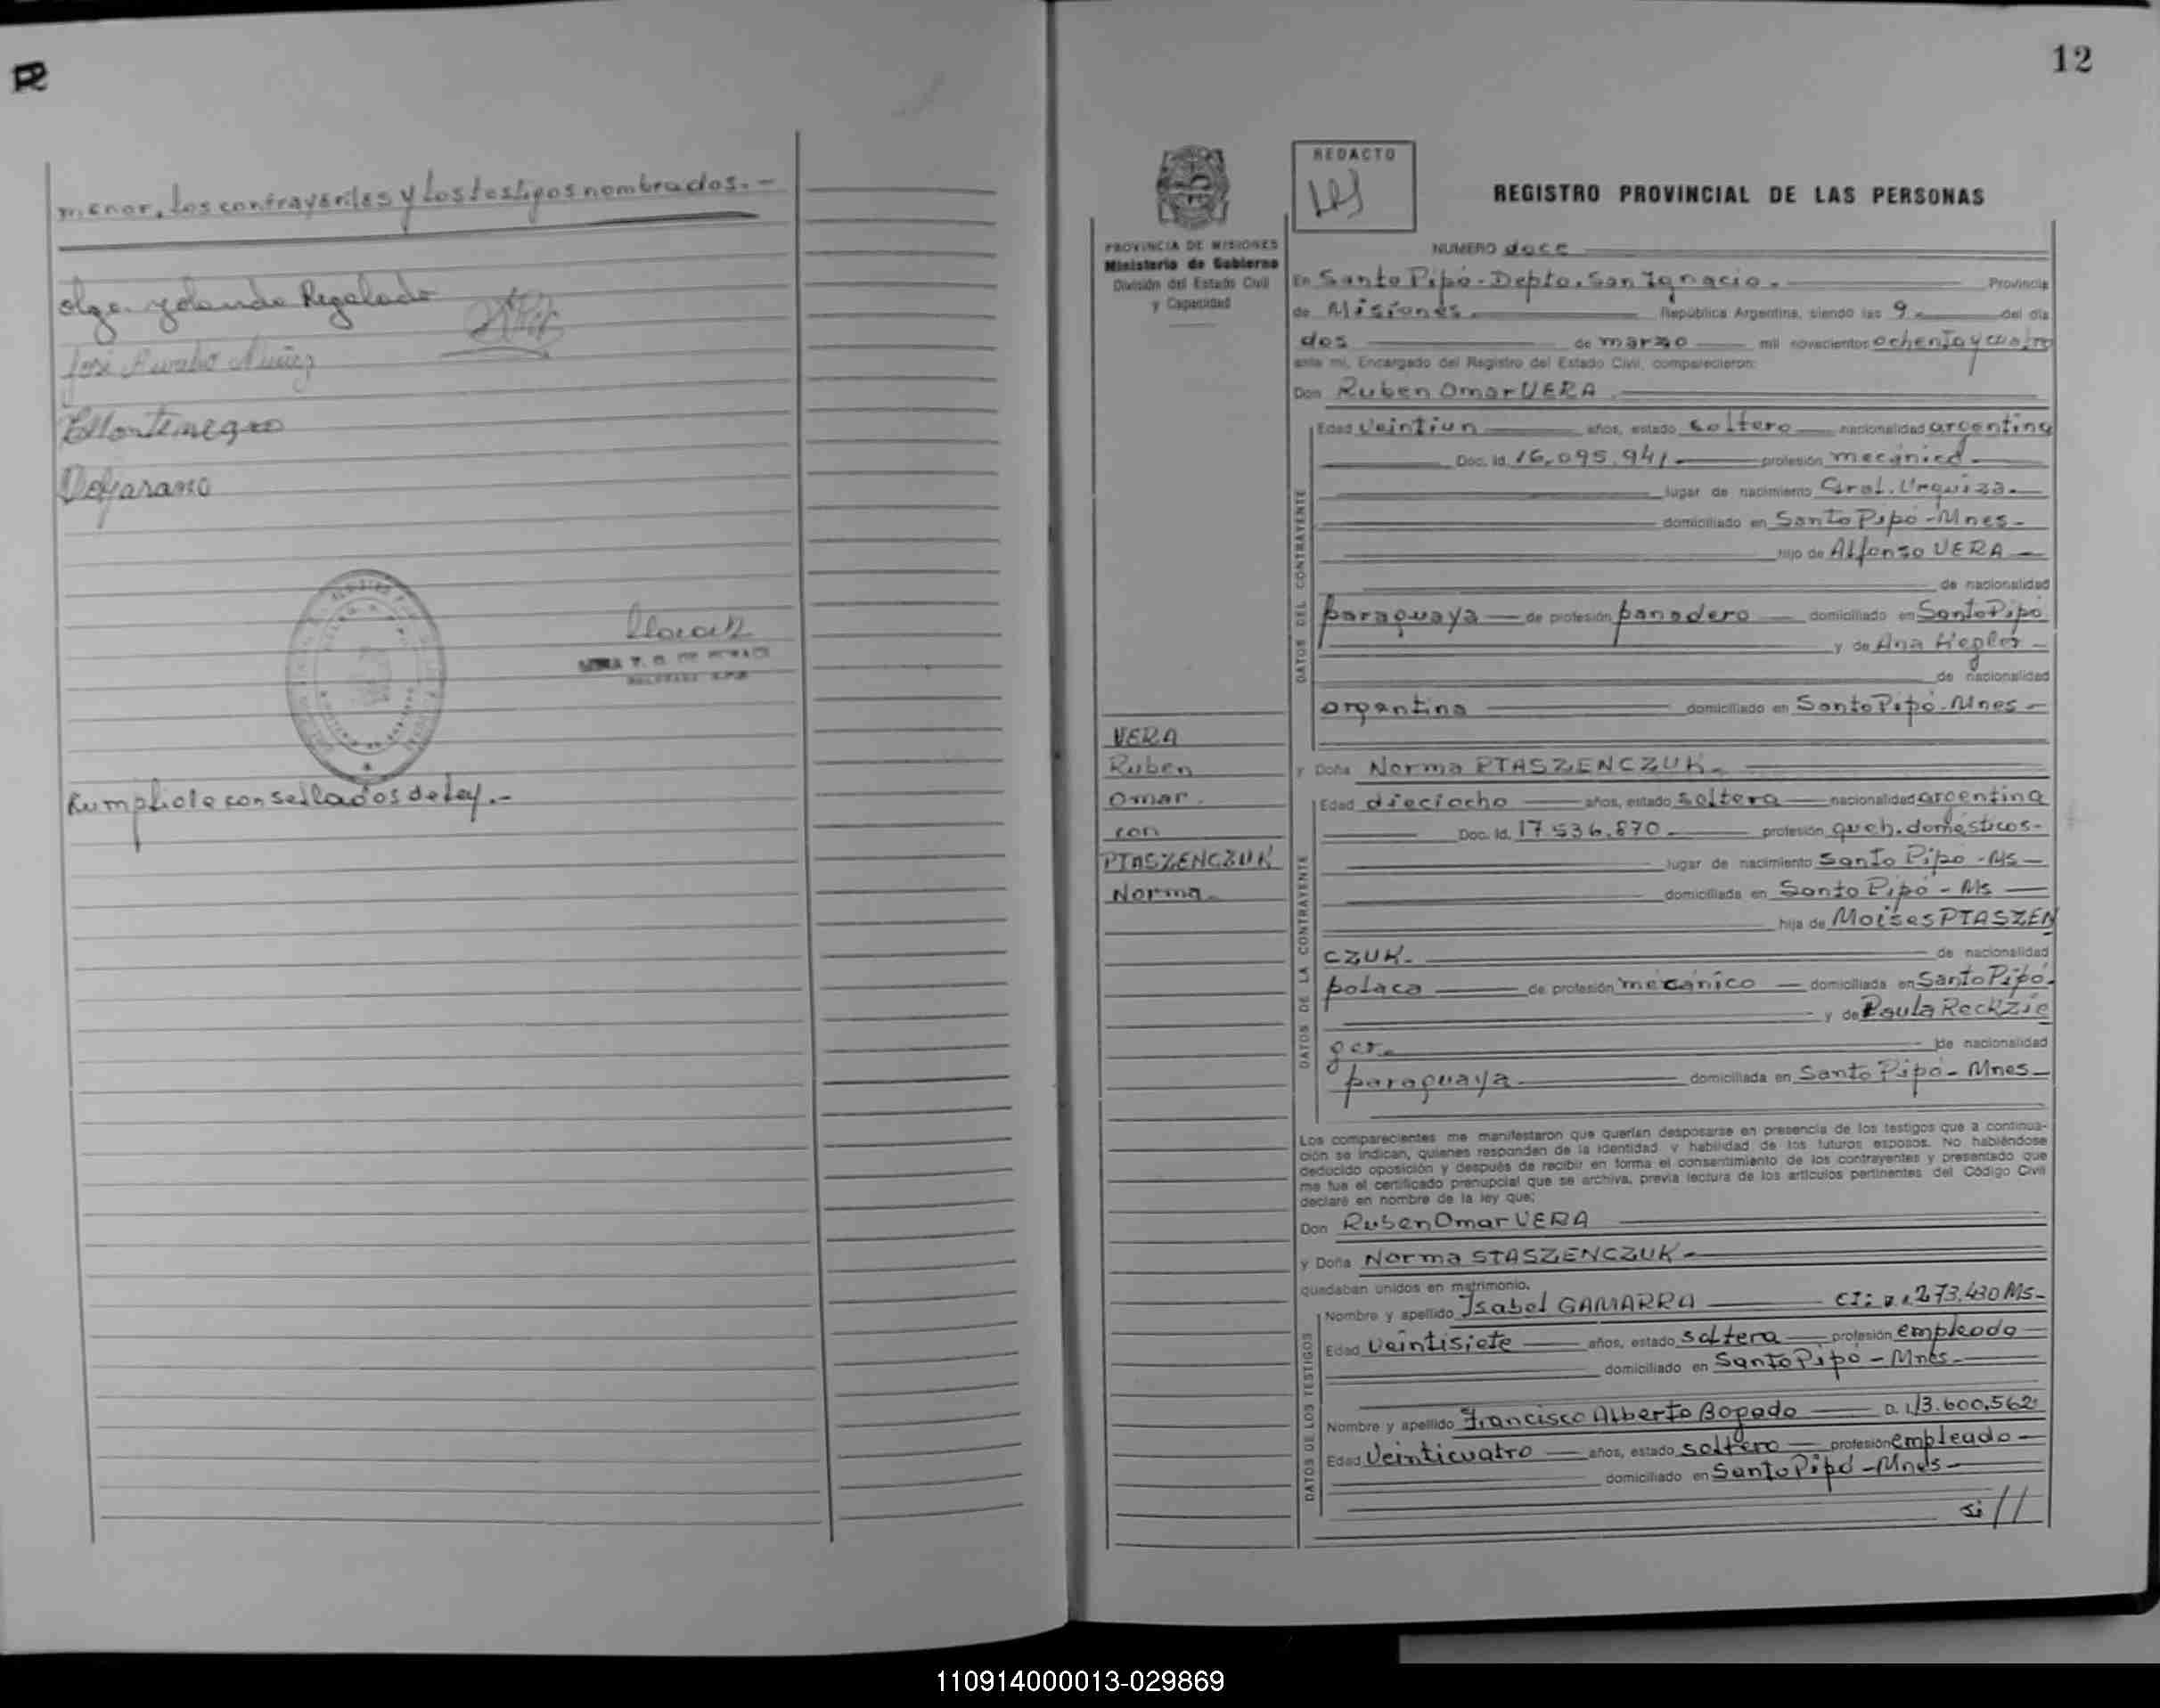 menor, los contrayentes y los testigos nombrados.-
Olga Yolanda Regalado
José Nuñez
EMontenegro
Cumpliole con sellados de Ley.-
12
REDACTO
REGISTRO PROVINCIAL DE LAS PERSONAS
PROVINCIA DE MISIONES
Ministerio de Gobierno
División del Estado Civil
y Capacidad
NUMERO doce
En Santo Pipó - Depto. San Ignacio. Provincia
de Misiones. República Argentina, siendo las 9 del día
dos de marzo mil novecientos ochenta y cuatro
ante mí, Encargado del Registro del Estado Civil, comparecieron:
Don Ruben Omar VERA
DATOS DEL CONTRAYENTE
Edad Veintiun años, estado soltero nacionalidad argentina
Doc. Id. 16.095.941 profesión mecánico
lugar de nacimiento Gral. Urquiza.
domiciliado en Santo Pipó - Mnes-
hijo de Alfonso VERA
de nacionalidad
paraguaya de profesión panadero domiciliado en Santo Pipó
y de Ana Hepler
de nacionalidad
argentina domiciliado en Santo Pipó - Mnes-
VERA
Ruben
Omar
con
PTASZENCZUK
Norma-
y Doña Norma PTASZENCZUK-
DATOS DE LA CONTRAYENTE
Edad dieciocho años, estado soltera nacionalidad argentina
Doc. Id. 17.536.870 profesión queh. domésticos-
lugar de nacimiento Santo Pipó - Ms
domiciliada en Santo Pipó - Ms
hija de Moises PTASZEN
CZUK- de nacionalidad
polaca de profesión mecánico domiciliada en Santo Pipó-
y de Paula Reckzie
ger- de nacionalidad
paraguaya domiciliada en Santo Pipó - Mnes-
Los comparecientes me manifestaron que querían desposarse en presencia de los testigos que a continua-
ción se indican, quienes responden de la identidad y habilidad de los futuros esposos. No habiéndose
deducido oposición y después de recibir en forma el consentimiento de los contrayentes y presentado que
me fue el certificado prenupcial que se archiva, previa lectura de los artículos pertinentes del Código Civil
declaré en nombre de la ley que;
Don Ruben Omar VERA
y Doña Norma STASZENCZUK-
quedaban unidos en matrimonio.
DATOS DE LOS TESTIGOS
Nombre y apellido Isabel GAMARRA CI: 273.430 Ms-
Edad Veintisiete años, estado soltera profesión empleada
domiciliado en Santo Pipó - Mnes-
Nombre y apellido Francisco Alberto Bogado D. I. 13.600.562
Edad Veinticuatro años, estado soltero profesión empleado
domiciliado en Santo Pipó - Mnes-
si //
110914000013-029869